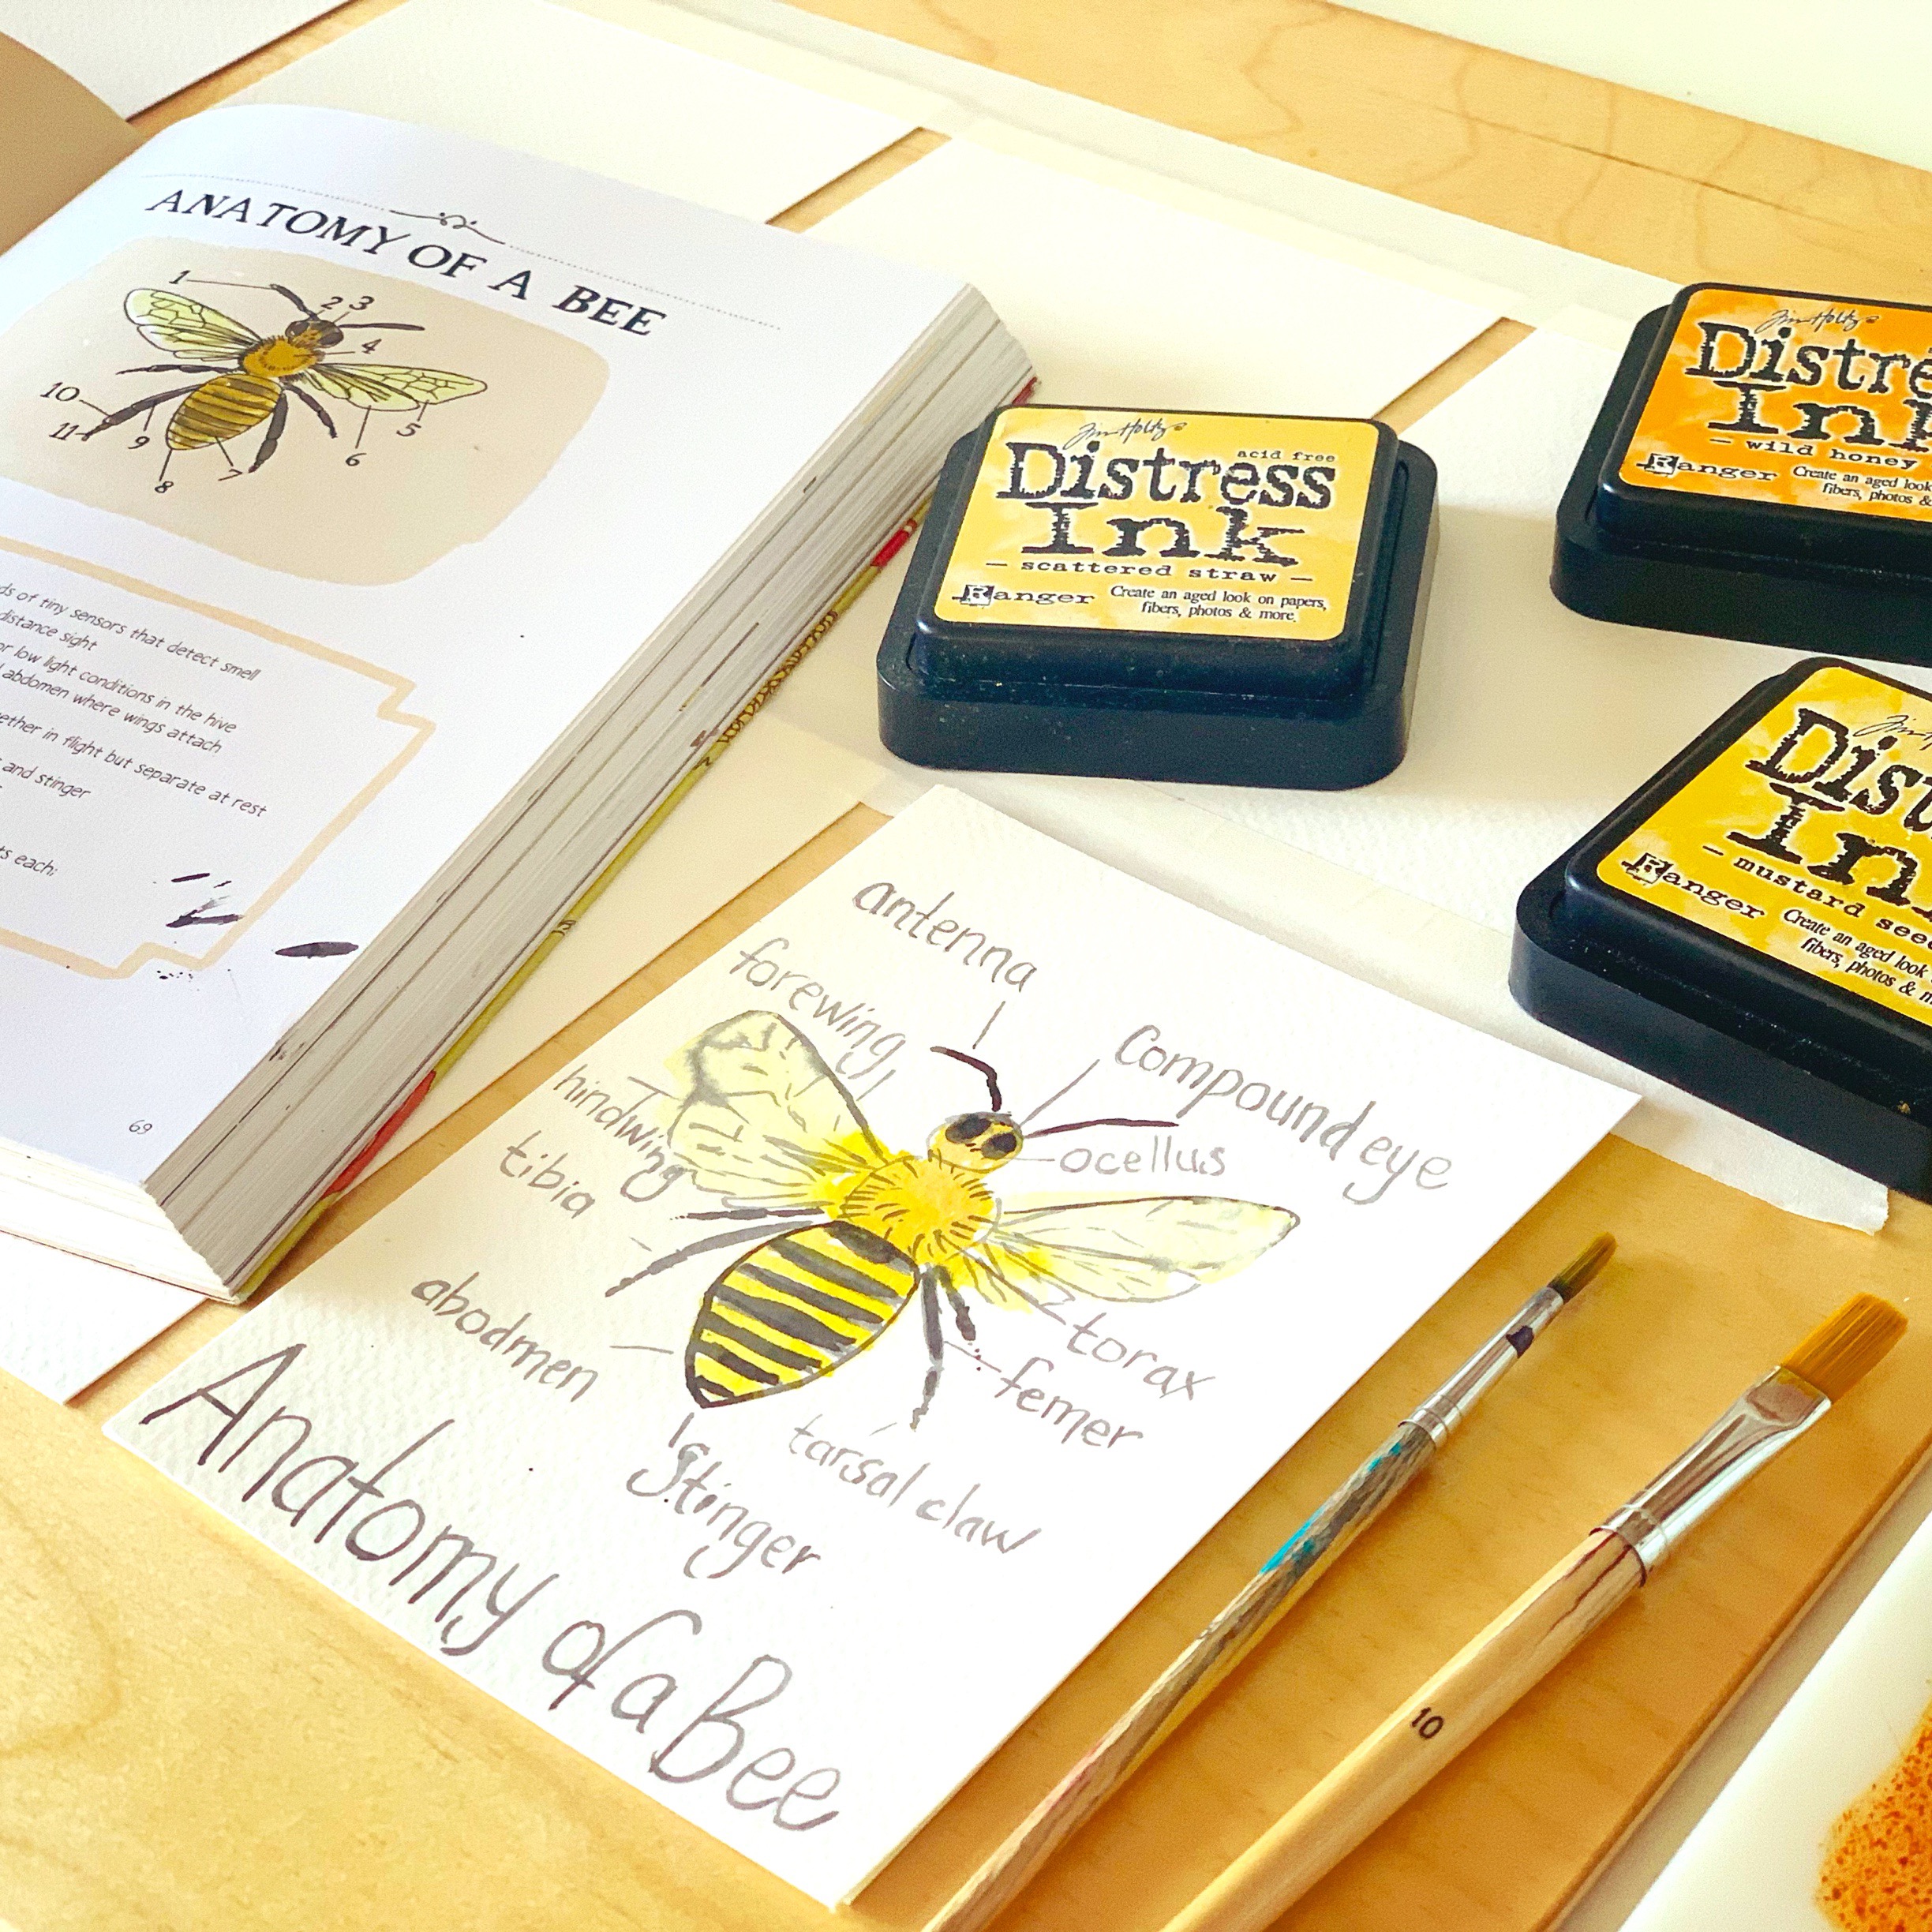 ANATOMY OF A BEE
1
2 3
4
10
11
9
5
6
7
8
of tiny sensors that detect smell
distance sight
low light conditions in the hive
abdomen where wings attach
in flight but separate at rest
and stinger
each:
69
Tim Holtz
acid free
Distress
Ink
— scattered straw —
Ranger
Create an aged look on papers,
fibers, photos & more.
Tim Holtz
— wild honey
Ranger
Create an aged look
fibers, photos &
— mustard seed
Ranger
Create an aged look
fibers, photos &
antenna
forewing
compound eye
hindwing
ocellus
tibia
abodmen
torax
femer
tarsal claw
Stinger
Anatomy of a Bee
10